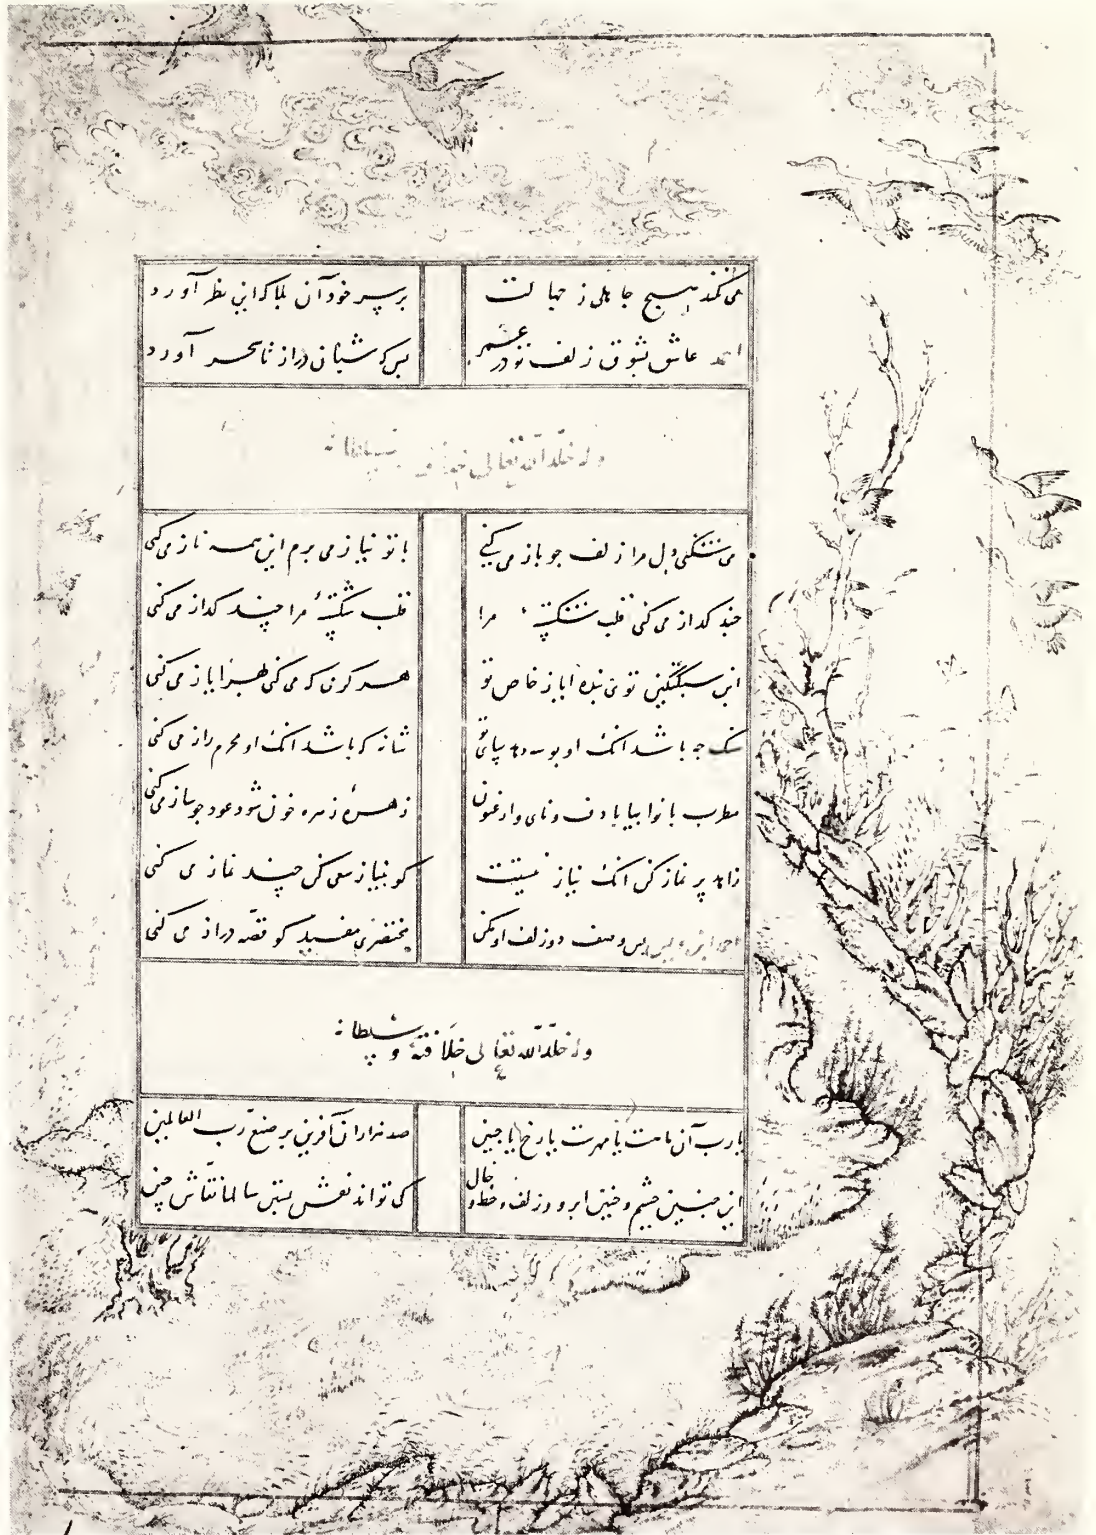 می‌کند هیچ جاهلی ز جهالت بر سر خود آن بلا که این نظر آورد
احمد عاشق بشوق زلف تو در عمر بس که شبان دراز تا سحر آورد
وله خلّد الله تعالی خلافته و سلطانه
می‌شکنی دل مرا زلف چو باز می‌کنی با تو نیاز می‌برم این همه ناز می‌کنی
چند گداز می‌کنی قلب شکستهٔ مرا قلب شکستهٔ مرا چند گداز می‌کنی
این سبکتکین توئی بنده ایاز خاص تو هر کرمی که می‌کنی بهر ایاز می‌کنی
سنگ چه باشد آنک او بوسه دهد بپای تو شانه که باشد آنک او محرم راز می‌کنی
مطرب بانوا بیا با دف و نای و ارغنون زهرهٔ زهره خون شود عود چو ساز می‌کنی
زاهد پر نماز کن آنک نیاز نیستت کو بنیاز سعی کن چند نماز می‌کنی
وصف دو زلف او مکن مختصری مفید کو قصّه دراز می‌کنی
وله خلّد الله تعالی خلافته و سلطانه
یارب آن ماهست یا مهرست یا رخ یا جبین صد هزاران آفرین بر صنع ربّ العالمین
این چنین چشم و چنین ابرو و زلف و خط و خال کی تواند نقش بستن سالها نقّاش چین